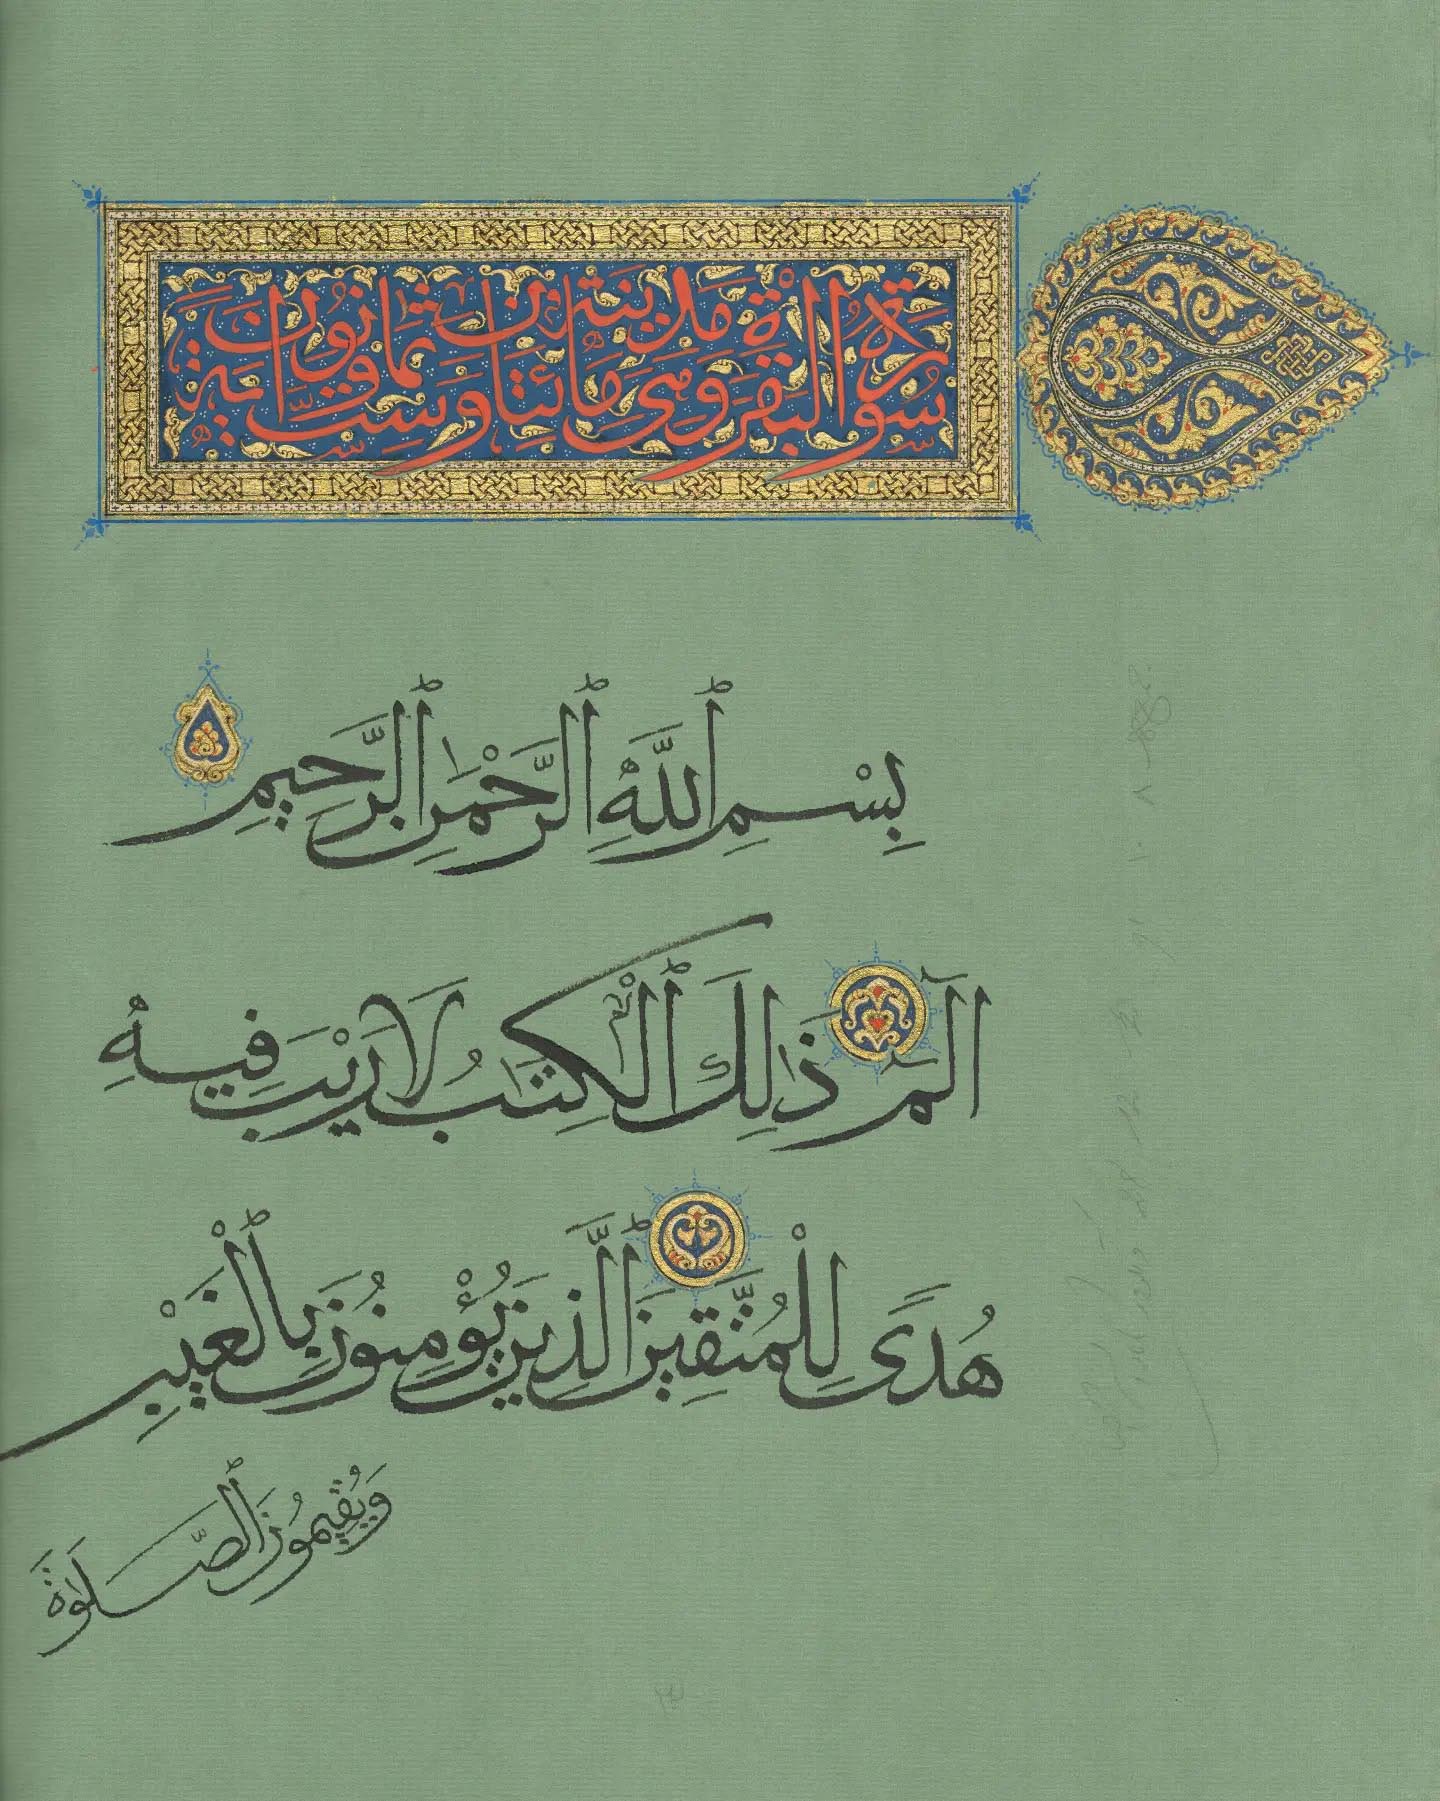 سُورَةُ الْبَقَرَةِ مَدَنِيَّةٌ وَهِيَ مِائَتَانِ وَسِتٌّ وَثَمَانُونَ آيَةً
بِسْمِ ٱللَّهِ ٱلرَّحْمَٰنِ ٱلرَّحِيمِ
الٓمٓ ذَٰلِكَ ٱلْكِتَٰبُ لَا رَيْبَ فِيهِ
هُدًى لِلْمُتَّقِينَ ٱلَّذِينَ يُؤْمِنُونَ بِٱلْغَيْبِ
وَيُقِيمُونَ ٱلصَّلَوٰةَ